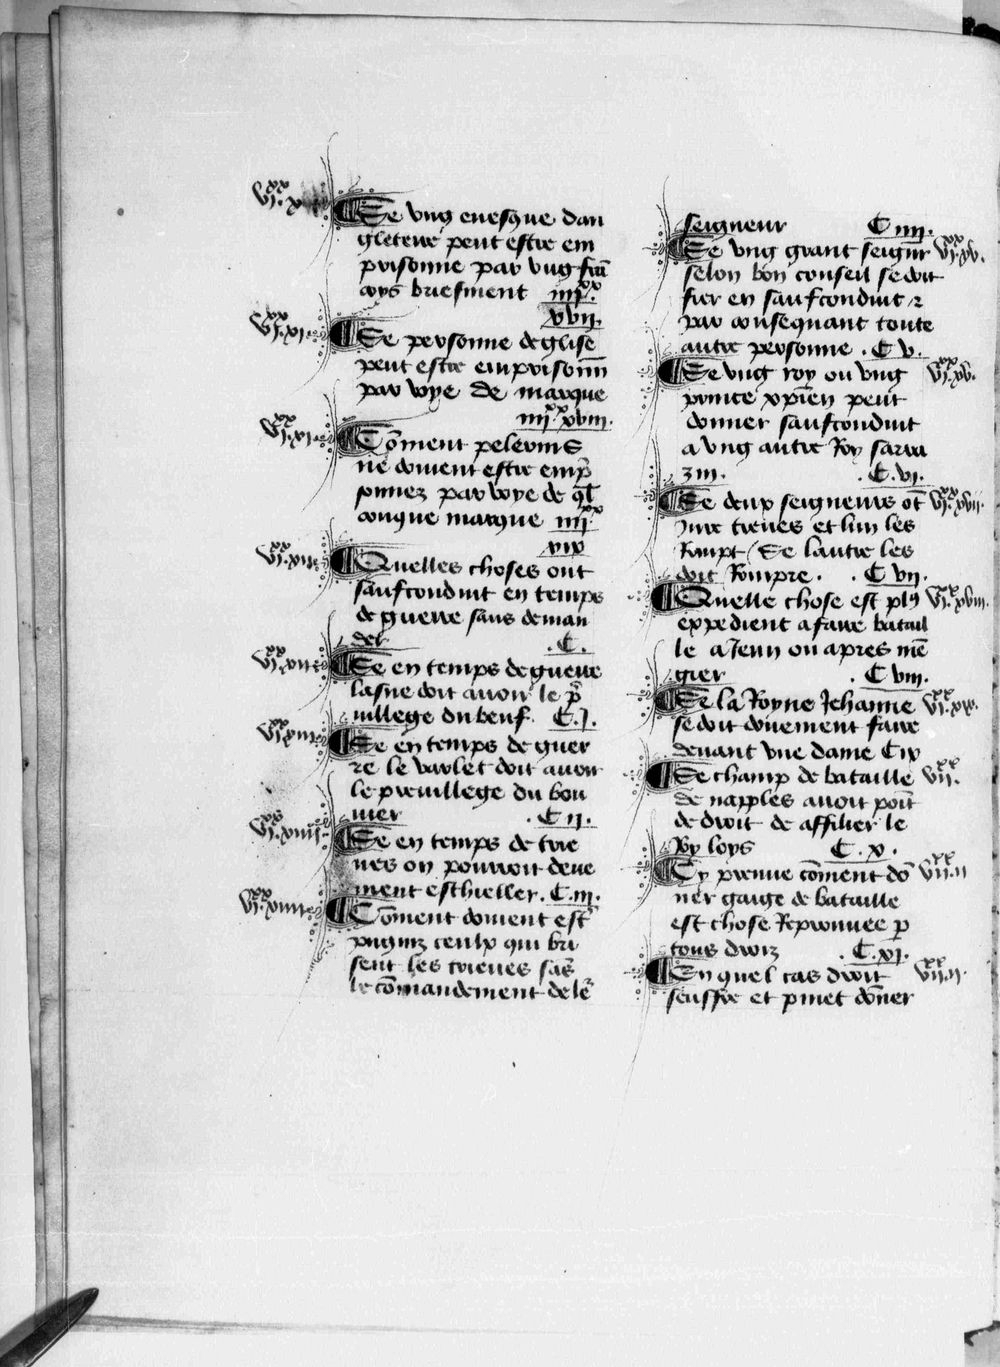 vi.xx x
Se ung evesque dan
gleterre peut estre em
prisonne par ung frā
coys briefment iiii.xx
xvii.
vi.xx xi.
Se personne deglise
peut estre emprisonn̄
par voye de marque
iiii.xx xviii.
vi.xx xi.
Cōment pelerins
ne doivent estre emp̄
sonnez par voye de ql̄
conque marque iiii.xx
xix
vi.xx xii
Quelles choses ont
saufconduit en temps
de guerre sans deman
der .C.
vi.xx xiii
Se en temps de guerre
lasne doit avoir le p̄
uillege du beuf. C.i.
vi.xx xiii
Se en temps de guer
re le varlet doit avoir
le preuillege du bou
uier .C ii.
vi.xx xiiii
Se en temps de trie
ves on pourroit deue
ment eschieller. C.iii.
vi.xx xiiii
Cōment doivent estr̄
pugniz ceulx qui bri
sent les trieves sās
le cōmandement de lr̄
seigneur C iiii.
Se ung grant seignr̄ vi.xx xv.
selon bon conseil se doit
fier en saufconduit ⁊
par consequant toute
autre personne .C v.
Se ung roy ou ung vi.xx xv.
prince xp̄ien peut
donner saufconduit
a ung autre Roy sarra
zin. .C.vi.
Se deux seigneurs ōt vi.xx xvii.
jure treves et lun les
Rompt / Se lautre les
doit Rompre. .C vii.
Quelle chose est plꝯ vi.xx xviii.
expedient a faire batail
le a Jeun ou apres mē
gier .C viii.
Se la Royne Jehanne vi.xx xix.
se doit dōuement faire
devant une dame C ix
Se champ de bataille vii.xx
de napples avoit poīt
de droit de affilier le
Roy loys C.x.
Cy preuve cōment dō vii.xx ii
ner gaige de bataille
est chose Reprouvee p̱
tous droiz .C.xi.
En quel cas droit vii.xx ii.
seuffre et p̱met dōner